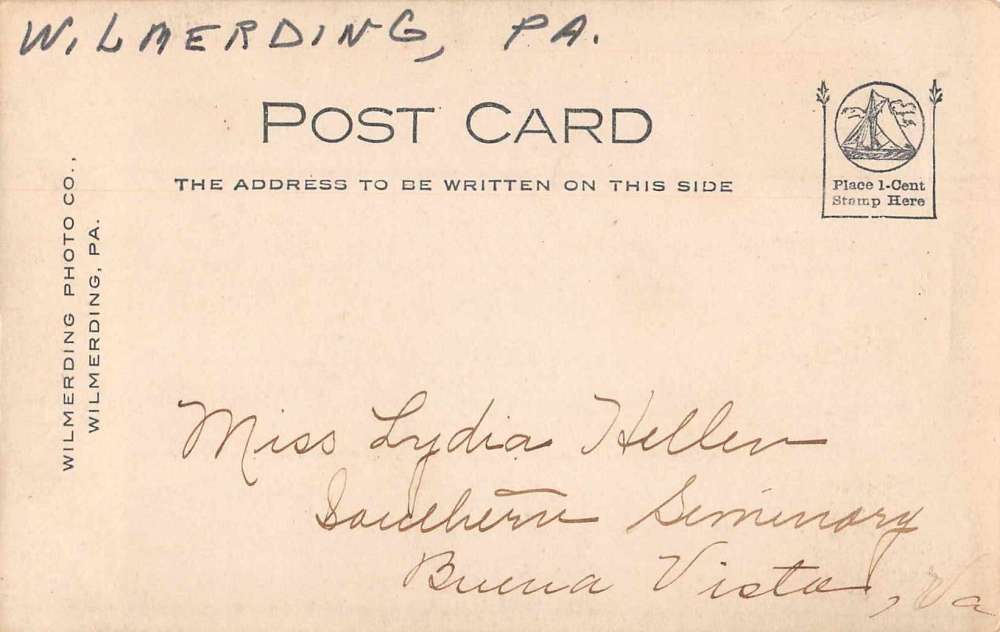 WILMERDING, PA.
POST CARD
THE ADDRESS TO BE WRITTEN ON THIS SIDE
Place 1-Cent
Stamp Here
WILMERDING PHOTO CO.,
WILMERDING, PA.
Miss Lydia Heller
Southern Seminary
Buena Vista, Va